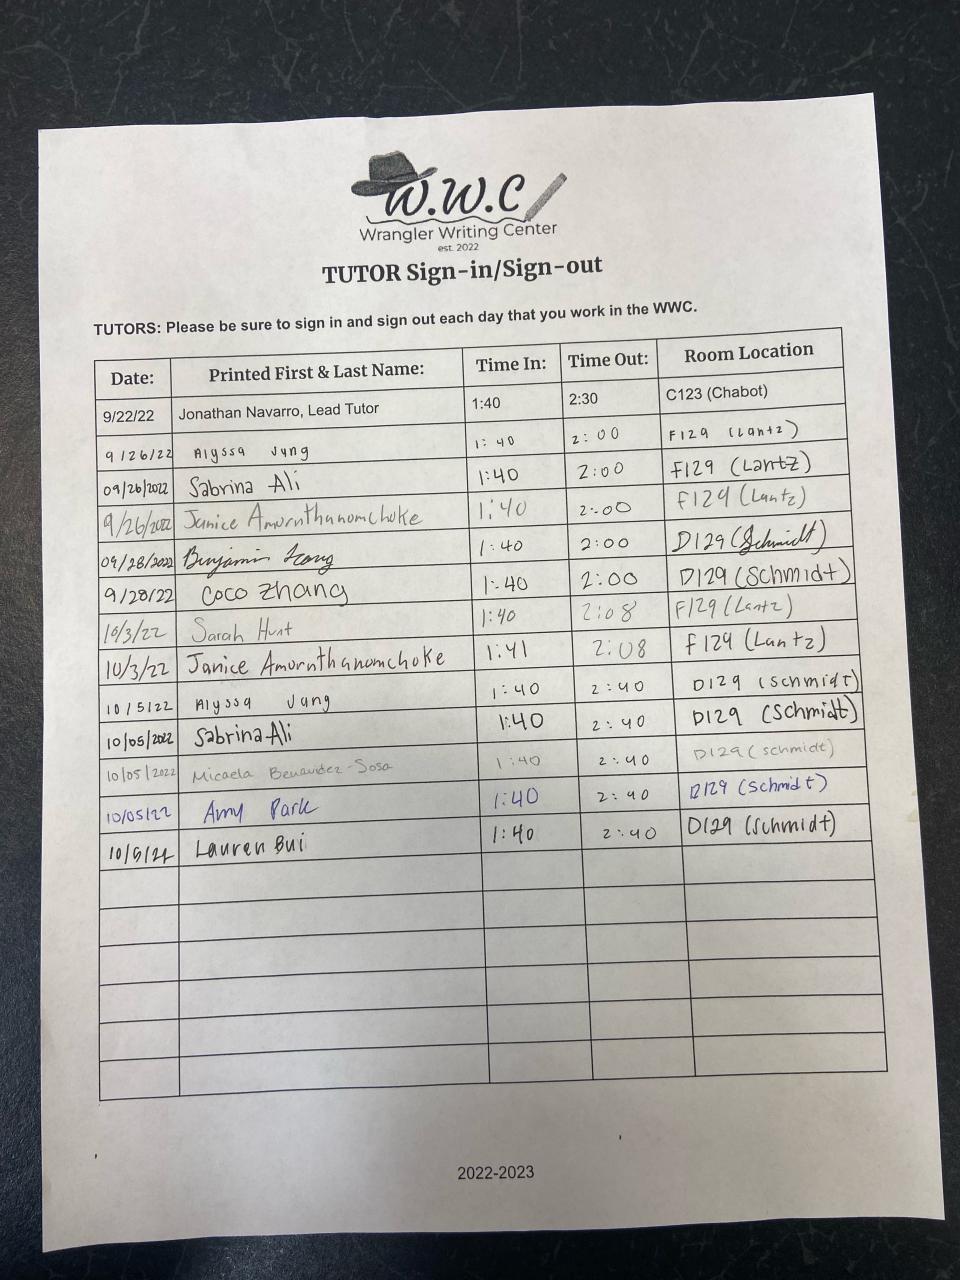 W.W.C
Wrangler Writing Center
est. 2022
TUTOR Sign-in/Sign-out
TUTORS: Please be sure to sign in and sign out each day that you work in the WWC.
Date: Printed First & Last Name: Time In: Time Out: Room Location
9/22/22 Jonathan Navarro, Lead Tutor 1:40 2:30 C123 (Chabot)
9/26/22 Alyssa Jung 1:40 2:00 F129 (Lantz)
09/26/2022 Sabrina Ali 1:40 2:00 F129 (Lantz)
9/26/2022 Janice Amornthanomchoke 1:40 2:00 F129 (Lantz)
09/28/2022 Benjamin 1:40 2:00 D129 (Schmidt)
9/28/22 Coco Zhang 1:40 2:00 D129 (Schmidt)
10/3/22 Sarah Hunt 1:40 2:08 F129 (Lantz)
10/3/22 Janice Amornthanomchoke 1:41 2:08 F129 (Lantz)
10/5/22 Alyssa Jung 1:40 2:40 D129 (Schmidt)
10/05/2022 Sabrina Ali 1:40 2:40 D129 (Schmidt)
10/05/2022 Micaela Benavidez-Sosa 1:40 2:40 D129 (schmidt)
10/05/22 Amy Park 1:40 2:40 D129 (Schmidt)
Lauren Bui 1:40 2:40 D129 (Schmidt)
2022-2023